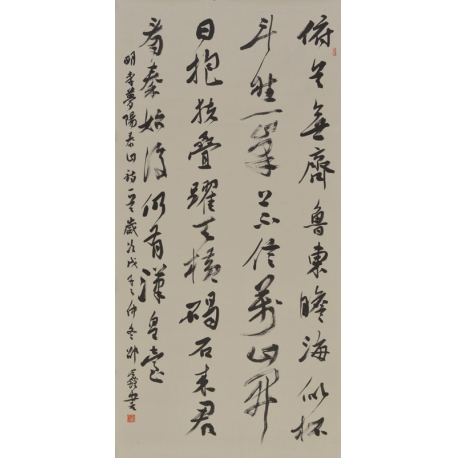 俯首無齊魯東瞻海似杯
斗然一峯上不信萬山開
日抱扶桑躍天橫碣石来君
看秦始後仍有漢皇臺
明李夢陽泰山詩一首歲次戊子仲冬書